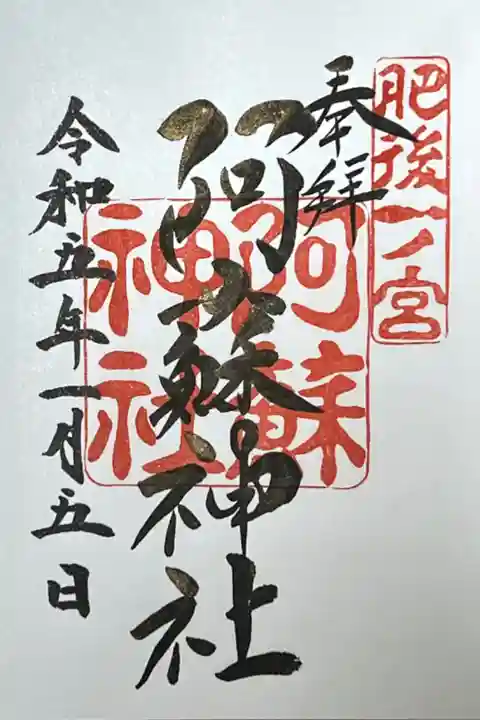 肥後一ノ宮
奉拝
阿蘇神社
阿蘇
神社
令和五年一月五日